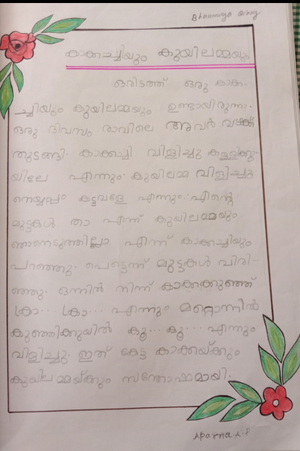 കാക്കച്ചിയും കുയിലമ്മയും
ഒരിടത്ത് ഒരു കാക്ക-
ച്ചിയും കുയിലമ്മയും ഉണ്ടായിരുന്നു.
ഒരു ദിവസം രാവിലെ അവർ വഴക്ക്
തുടങ്ങി. കാക്കച്ചി വിളിച്ചു കള്ളക്കു-
യിലേ എന്നും കുയിലമ്മ വിളിച്ചു
കട്ടവളേ എന്നും. എന്റെ
മുട്ടകൾ താ എന്ന് കുയിലമ്മയും
ഞാനെടുത്തില്ലാ എന്ന് കാക്കച്ചിയും
പറഞ്ഞു. പെട്ടെന്ന് മുട്ടകൾ വിരി-
ഞ്ഞു. ഒന്നിൽ നിന്ന് കാക്കക്കുഞ്ഞ്
ക്രാ... ക്രാ... എന്നും മറ്റൊന്നിൽ
കുഞ്ഞിക്കുയിൽ കൂ... കൂ... എന്നും
വിളിച്ചു. ഇത് കേട്ട കാക്കയ്ക്കും
കുയിലമ്മയ്ക്കും സന്തോഷമായി.
Aparna